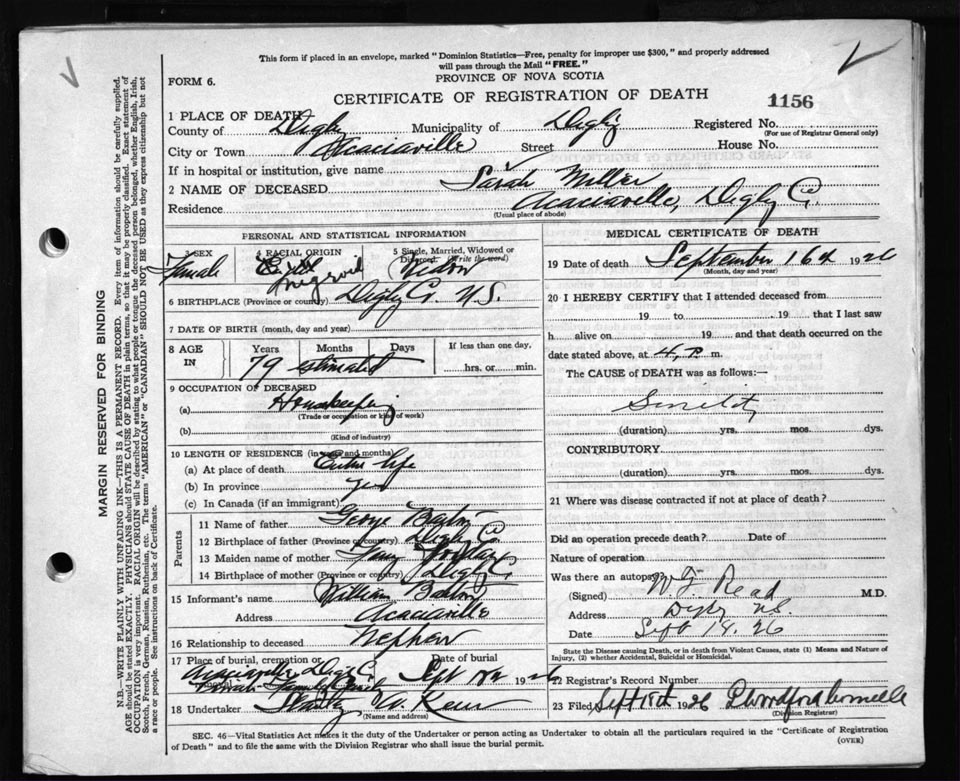 This form if placed in an envelope, marked "Dominion Statistics—Free, penalty for improper use $300," and properly addressed
will pass through the Mail "FREE."
PROVINCE OF NOVA SCOTIA
FORM 6.
CERTIFICATE OF REGISTRATION OF DEATH
1156
1 PLACE OF DEATH
County of Digby Municipality of Digby Registered No.
(For use of Registrar General only)
City or Town Acaciaville Street House No.
If in hospital or institution, give name
2 NAME OF DECEASED Sarah Miller
Residence Acaciaville, Digby Co.
(Usual place of abode)
PERSONAL AND STATISTICAL INFORMATION
3 SEX Female
4 RACIAL ORIGIN
5 Single, Married, Widowed or
Divorced (Write the word)
Widow
6 BIRTHPLACE (Province or county) Digby Co. N.S.
7 DATE OF BIRTH (month, day and year)
8 AGE IN Years Months Days If less than one day,
79 estimated hrs. or min.
9 OCCUPATION OF DECEASED
(a) Housekeeping
(Trade or occupation or kind of work)
(b)
(Kind of industry)
10 LENGTH OF RESIDENCE (in years and months)
(a) At place of death Entire life
(b) In province
(c) In Canada (if an immigrant)
Parents
11 Name of father George
12 Birthplace of father (Province or country) Digby Co.
13 Maiden name of mother
14 Birthplace of mother (Province or country) Digby Co.
15 Informant's name William
Address Acaciaville
16 Relationship to deceased Nephew
17 Place of burial, cremation or Date of burial
Acaciaville Digby Co. Sept 1926
18 Undertaker Stanley W.
(Name and address)
MEDICAL CERTIFICATE OF DEATH
19 Date of death September 16th 1926
(Month, day and year)
20 I HEREBY CERTIFY that I attended deceased from
19 to 19 that I last saw
h alive on 19 and that death occurred on the
date stated above, at 4 P. m.
The CAUSE of DEATH was as follows:—
Senility
(duration) yrs. mos. dys.
CONTRIBUTORY
(duration) yrs. mos. dys.
21 Where was disease contracted if not at place of death?
Did an operation precede death? Date of
Nature of operation
Was there an autopsy
(Signed) W.F. Read M.D.
Address Digby N.S.
Date Sept 19. 26
State the Disease causing Death, or in death from Violent Causes, state (1) Means and Nature of
Injury, (2) whether Accidental, Suicidal or Homicidal.
22 Registrar's Record Number
23 Filed Sept 18th 1926
(Division Registrar)
SEC. 46—Vital Statistics Act makes it the duty of the Undertaker or person acting as Undertaker to obtain all the particulars required in the "Certificate of Registration
of Death" and to file the same with the Division Registrar who shall issue the burial permit. (OVER)
MARGIN RESERVED FOR BINDING
N.B.—WRITE PLAINLY WITH UNFADING INK—THIS IS A PERMANENT RECORD. Every item of information should be carefully supplied.
AGE should be stated EXACTLY. PHYSICIANS should STATE CAUSE OF DEATH in plain terms, so that it may be properly classified. Exact statement of
OCCUPATION is very important. RACIAL ORIGIN will be described by stating to what people or tongue the deceased person belonged, whether English, Irish,
Scotch, French, German, Russian, Ruthenian, etc. The terms "AMERICAN" or "CANADIAN" SHOULD NOT BE USED as they express citizenship but not
a race or people. See instructions on back of Certificate.